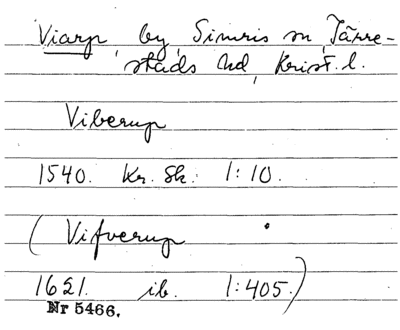 Viarp by, Simris sn, Järre-
stads hd, Krist. l.
Viberup
1540. Kr. Sk. 1:10.
(Vifverup
1621. ib. 1:405.)
Nr 5466.